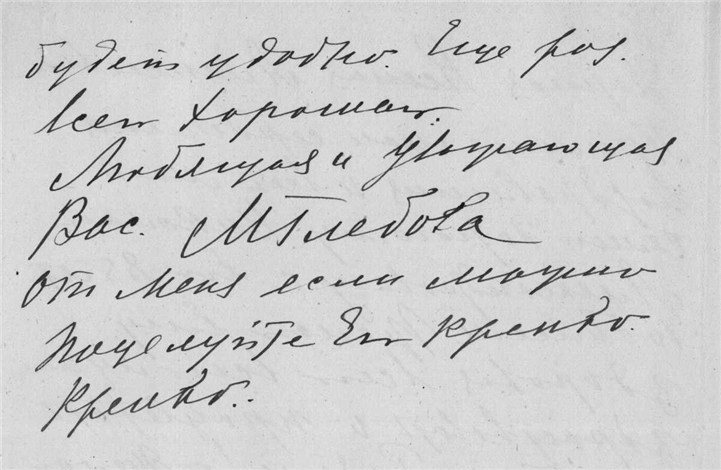 будет удобно. Еще раз.
всем хорошаго.
Любящая и Уважающая
Вас. МГлебова
От меня если можно
поцелуйте Ея крепко.
крепко.